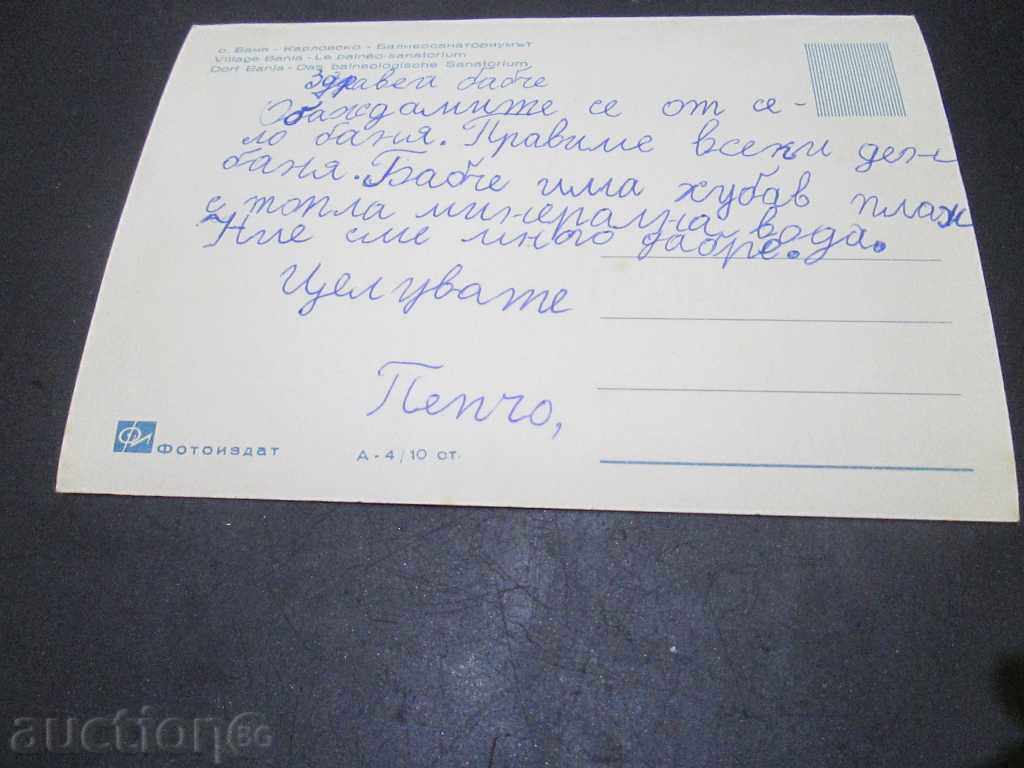 с. Баня - Карловско - Балнеосанаториумът
Village Bania - Le balnéo-sanatorium
Dorf Banja - Das balneologische Sanatorium
Здравей бабче
Обаждамите се от се-
ло баня. Правиме всеки ден
баня. Бабче има хубав плаж
с топла минерална вода.
Ние сме много дабре.
Целувате
Пепчо,
Фотоиздат
А - 4/10 ст.
auction BG